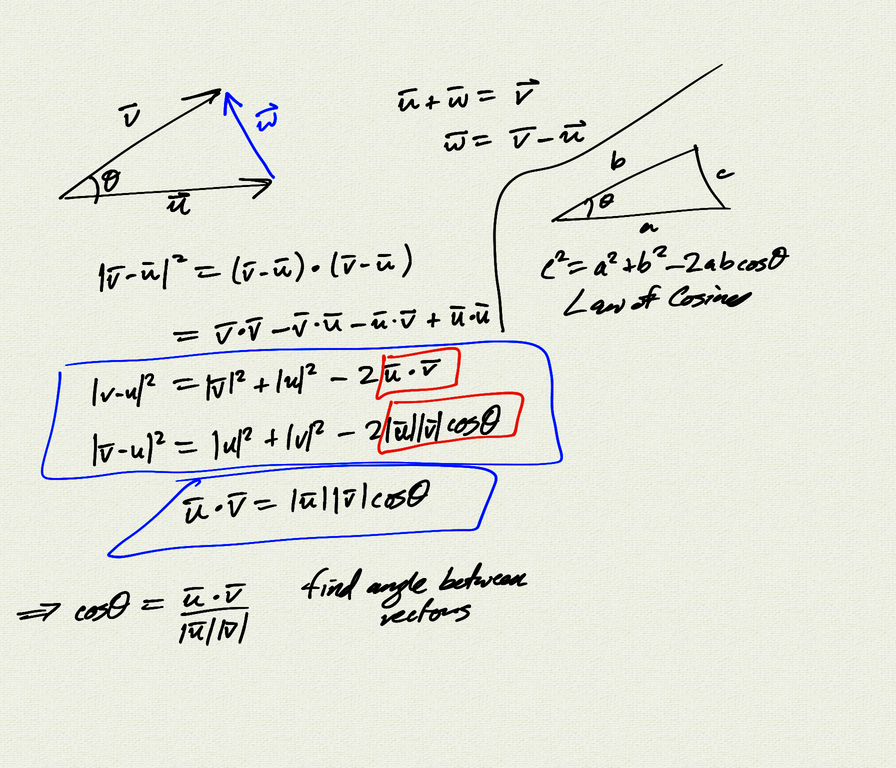 v̅
w⃗
θ
u⃗
u̅ + w̅ = v⃗
w̅ = v̅ - u⃗
b
c
θ
a
c² = a² + b² - 2ab cosθ
Law of Cosines
|v̅-u̅|² = (v̅-u̅)·(v̅-u̅)
= v̅·v̅ - v̅·u̅ - u̅·v̅ + u̅·u̅
|v-u|² = |v̅|² + |u|² - 2 u̅·v̅
|v̅-u|² = |u|² + |v|² - 2|u̅||v̅| cosθ
u̅·v̅ = |u̅||v̅| cosθ
⇒ cosθ = u̅·v̅ / |u̅||v̅|
find angle between
vectors